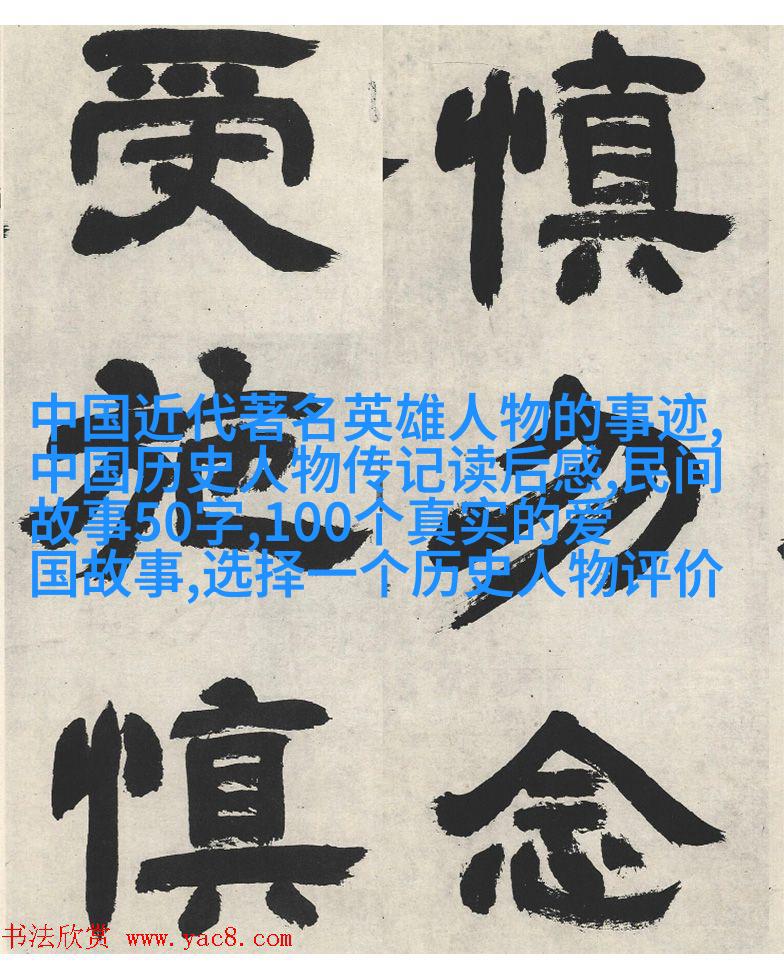 慎勿念
受施慎
中国近代著名英雄人物的事迹,
中国历史人物传记读后感,民间
故事50字,100个真实的爱
国故事,选择一个历史人物评价
书法欣赏 www.yac8.com